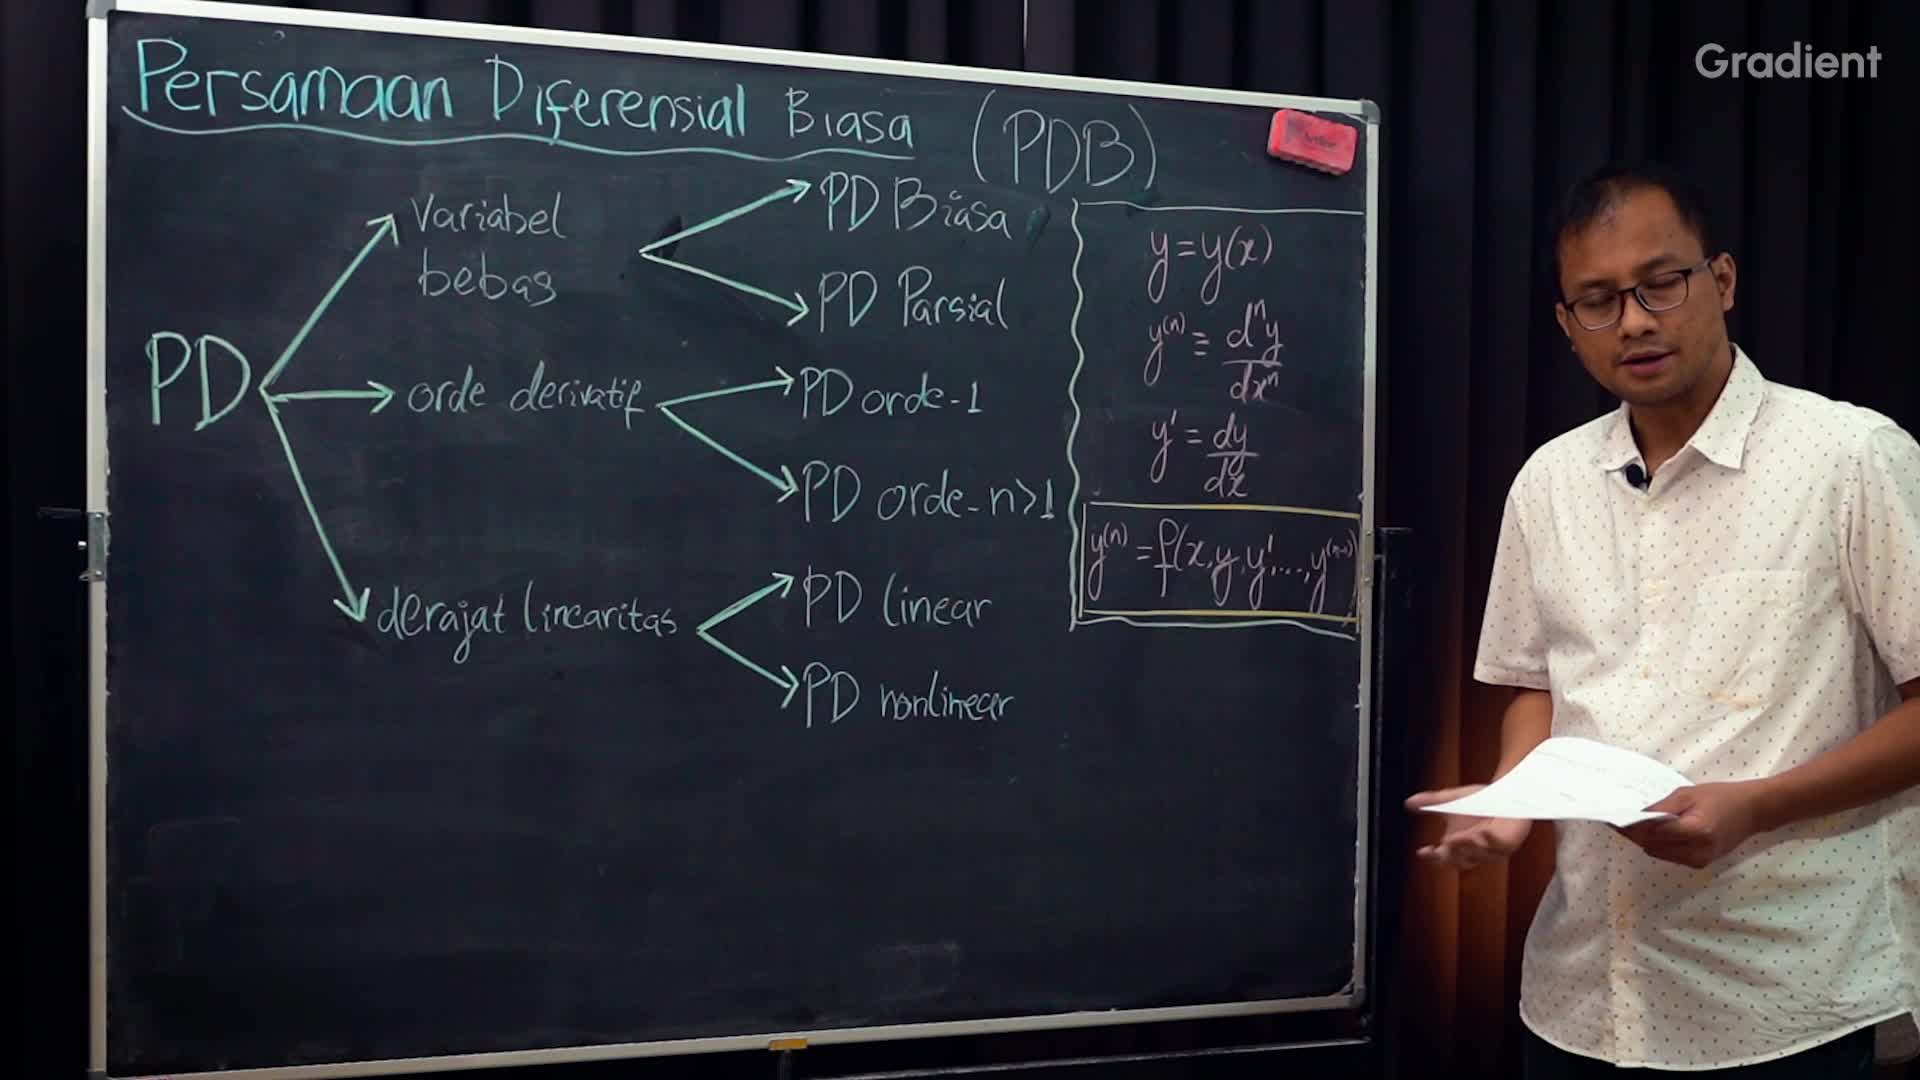 Gradient
Persamaan Diferensial Biasa (PDB)
PD
Variabel
bebas
PD Biasa
PD Parsial
orde derivatif
PD orde-1
PD orde-n>1
derajat linearitas
PD linear
PD nonlinear
y=y(x)
y⁽ⁿ⁾ ≡ dⁿy/dxⁿ
y' = dy/dx
y⁽ⁿ⁾ = f(x,y,y',...,y⁽ⁿ⁻¹⁾)